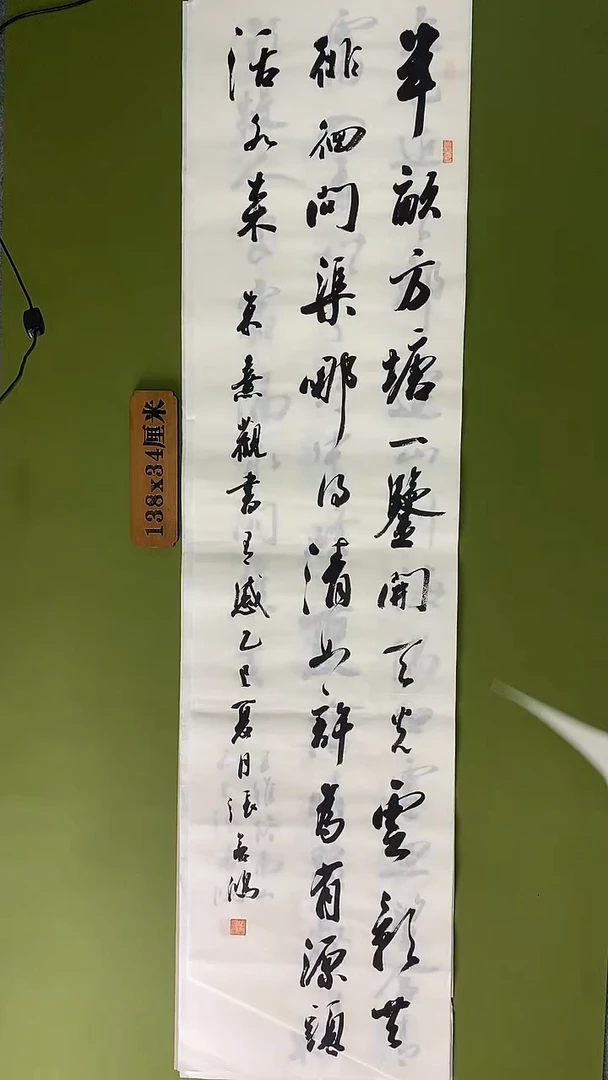 半畝方塘一鑒開天光雲影共
徘徊問渠哪得清如許為有源頭
活水來 朱熹觀書有感乙巳夏月張
138x34厘米